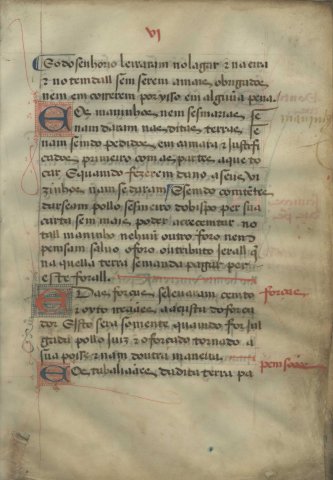 VI
So do senhorio levaram no lagar & na eira
& non tendall sem serem a mais obrigados
nem em correrem por ysso em alguũa pena.
E Os maninhos nem sesmarias se
nam daram nas ditas terras se
nam sendo pedidos em camara & Justifi
cados primeiro com as partes a que to
car. E quando fezerem dano a seus vi
zinhos nam se daram E sendo
darseam pollo sesmeiro do bispo per sua
carta sem mais poder acrecentar no
tall maninho nehuũ outro foro nem
pensam salvo o foro ou tributo jerall q̃
naquella terra se manda pagar per
este forall.
E Das forças se levaram cento
& oyto reaaes a custa do força
dor E Isto sera somente quando for Jul
gada pollo Juiz & o forçado tornado a
sua posse & nam doutra maneira
forças
E Os tabaliaães da dita terra pa
pensoões